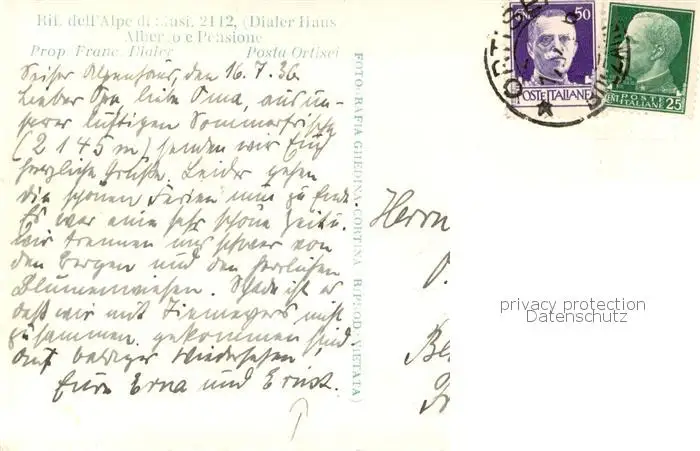 Rif. dell'Alpe di Siusi, 2142, (Dialer Haus
Albergo e Pensione
Prop. Franc. Dialer Posta Ortisei
Seiser Alpenhaus, den 16.7.36
Lieber Opa, liebe Oma, aus un-
serer luftigen Sommerfrische
(2145 m) senden wir Euch
herzliche Grüße. Leider gehen
die schönen Ferien nun zu Ende.
Es war eine sehr schöne Zeit u.
wir trennen uns schwer von
den Bergen und den herrlichen
Blumenwiesen. Schade ist es
daß wir mit nicht
zusammen gekommen sind.
Auf baldiges Wiedersehen!
Eure Erna und Ernst.
FOTO: RAFIA GHEDINA-CORTINA RIPROD. VIETATA)
ORTISEI
50
POSTE ITALIANE
POSTE
ITALIANE
CENT 25
Herrn
privacy protection
Datenschutz